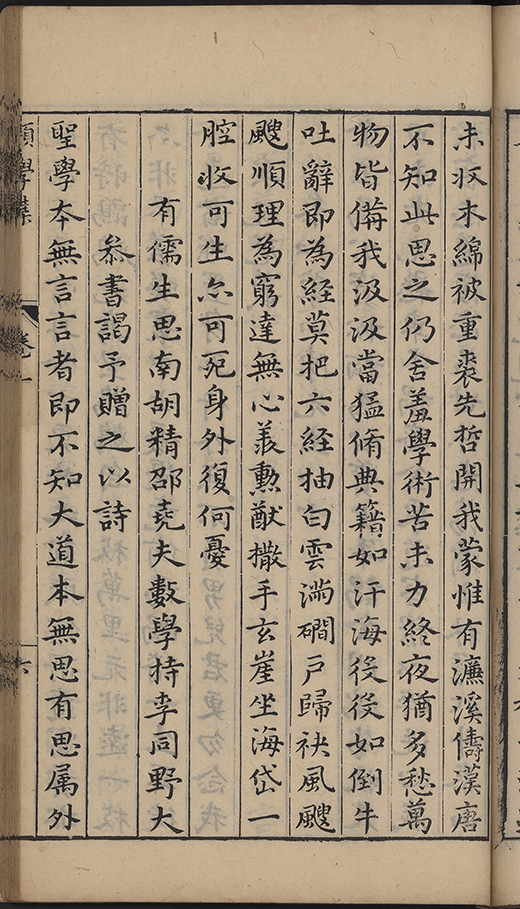 未収木綿被重裘先哲開我蒙惟有濂溪儔漢唐
不知此思之仍舍羞學術苦未力終夜猶多愁萬
物皆備我汲汲當猛脩典籍如汗海役役如倒牛
吐辭即為經莫把六經抽白雲滿磵戶歸袂風颼
颼順理為窮達無心羨勲猷撒手玄崖坐海岱一
腔收可生亦可死身外復何憂
有儒生思南胡精邵堯夫數學持李同野大
叅書謁予贈之以詩
聖學本無言言者即不知大道本無思有思属外
學
卷一
六